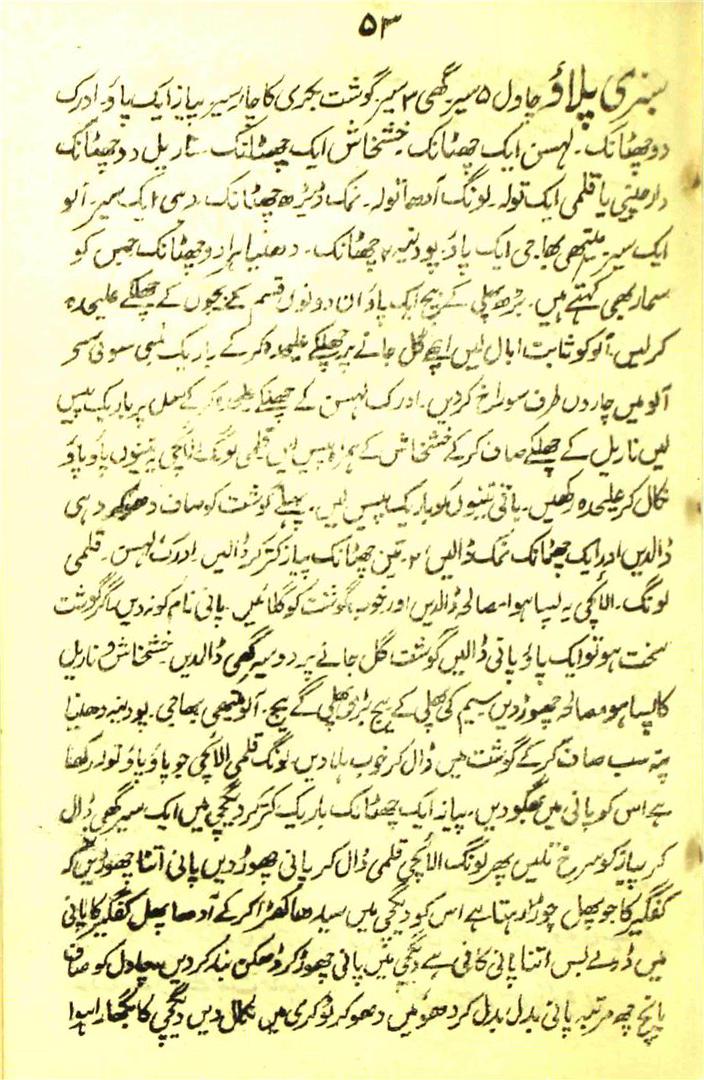 ۵۳
سبزی پلاؤ چاول ۵ سیر گھی ۳ سیر گوشت بکری کا چار سیر پیاز ایک پاؤ۔ ادرک
دو چھٹانک۔ لہسن ایک چھٹانک۔ خشخاش ایک چھٹانک۔ ناریل دو چھٹانک
دارچینی یا قلمی ایک تولہ۔ لونگ آدھا تولہ۔ نمک ڈیڑھ چھٹانک۔ دہی ایک سیر۔ آلو
ایک سیر۔ میتھی بھاجی ایک پاؤ۔ پودینہ ۲ چھٹانک۔ دھنیا ہرا دو چھٹانک جس کو
سمار بھی کہتے ہیں۔ بڑھ پھلی کے بیج ایک پاؤ ان دونوں قسم کے بیجوں کے چھلکے علیحدہ
کرلیں۔ آلو کو ثابت ابال لیں اچھے گل جانے پر چھلکے علیحدہ کرکے باریک لمبی سوئی سے
آلو میں چاروں طرف سوراخ کردیں۔ ادرک لہسن کے چھلکے علیحدہ کرکے سل پر باریک پیس
لیں ناریل کے چھلکے صاف کرکے خشخاش کے ہمراہ پیس لیں قلمی لونگ الائچی یہ تینوں پاؤ پاؤ
نکال کر علیحدہ رکھیں۔ باقی تینوں کو باریک پیس لیں۔ پہلے گوشت کو صاف دھوکر دہی
ڈالدیں اور ایک چھٹانک نمک ڈالیں ۲۔ تین چھٹانک پیاز کتر کر ڈالیں۔ ادرک لہسن۔ قلمی
لونگ۔ الائچی یہ پسا ہوا مصالحہ ڈالدیں اور خوب گوشت کو گلائیں۔ پانی نام کو نہ دیں اگر گوشت
سخت ہو تو ایک پاؤ پانی ڈالیں گوشت گل جانے پر دو سیر گھی ڈالدیں۔ خشخاش و ناریل
کا پسا ہو مصالحہ چھوڑ دیں سیم کی پھلی کے بیج بڑی پھلی کے بیج۔ آلو میتھی بھاجی۔ پودینہ دھنیا
یہ سب صاف کرکے گوشت میں ڈال کر خوب ہلا دیں۔ لونگ قلمی الائچی جو پاؤ پاؤ تولہ رکھا
ہے اس کو پانی میں بھگو دیں۔ پیاز ایک چھٹانک باریک کتر کر دیگچی میں ایک سیر گھی ڈال
کر پیاز کو سرخ تلیں پھر لونگ الائچی قلمی ڈال کر پانی چھوڑ دیں پانی اتنا چھوڑیں کہ
کفگیر کا جو پھل چوڑا رہتا ہے اس کو دیگچی میں سیدھا کھڑا کرکے آدھا پھل کفگیر کا پانی
میں ڈوبے بس اتنا پانی کافی ہے دیگچی میں پانی چھوڑ کر ڈھکن بند کردیں۔ چاول کو صاف
پانچ چھ مرتبہ پانی بدل بدل کر دھوئیں دھوکر ٹوکری میں نکال دیں دیگچی کا بگھارا ہوا